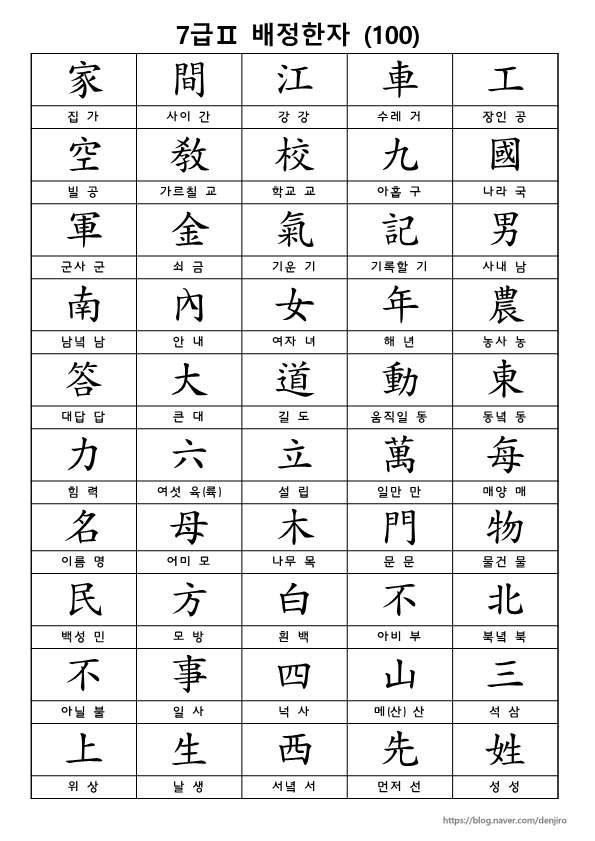 7급Ⅱ 배정한자 (100)
家 間 江 車 工
집 가 사이 간 강 강 수레 거 장인 공
空 敎 校 九 國
빌 공 가르칠 교 학교 교 아홉 구 나라 국
軍 金 氣 記 男
군사 군 쇠 금 기운 기 기록할 기 사내 남
南 內 女 年 農
남녘 남 안 내 여자 녀 해 년 농사 농
答 大 道 動 東
대답 답 큰 대 길 도 움직일 동 동녘 동
力 六 立 萬 每
힘 력 여섯 육(륙) 설 립 일만 만 매양 매
名 母 木 門 物
이름 명 어미 모 나무 목 문 문 물건 물
民 方 白 不 北
백성 민 모 방 흰 백 아비 부 북녘 북
不 事 四 山 三
아닐 불 일 사 넉 사 메(산) 산 석 삼
上 生 西 先 姓
위 상 날 생 서녘 서 먼저 선 성 성
https://blog.naver.com/denjiro